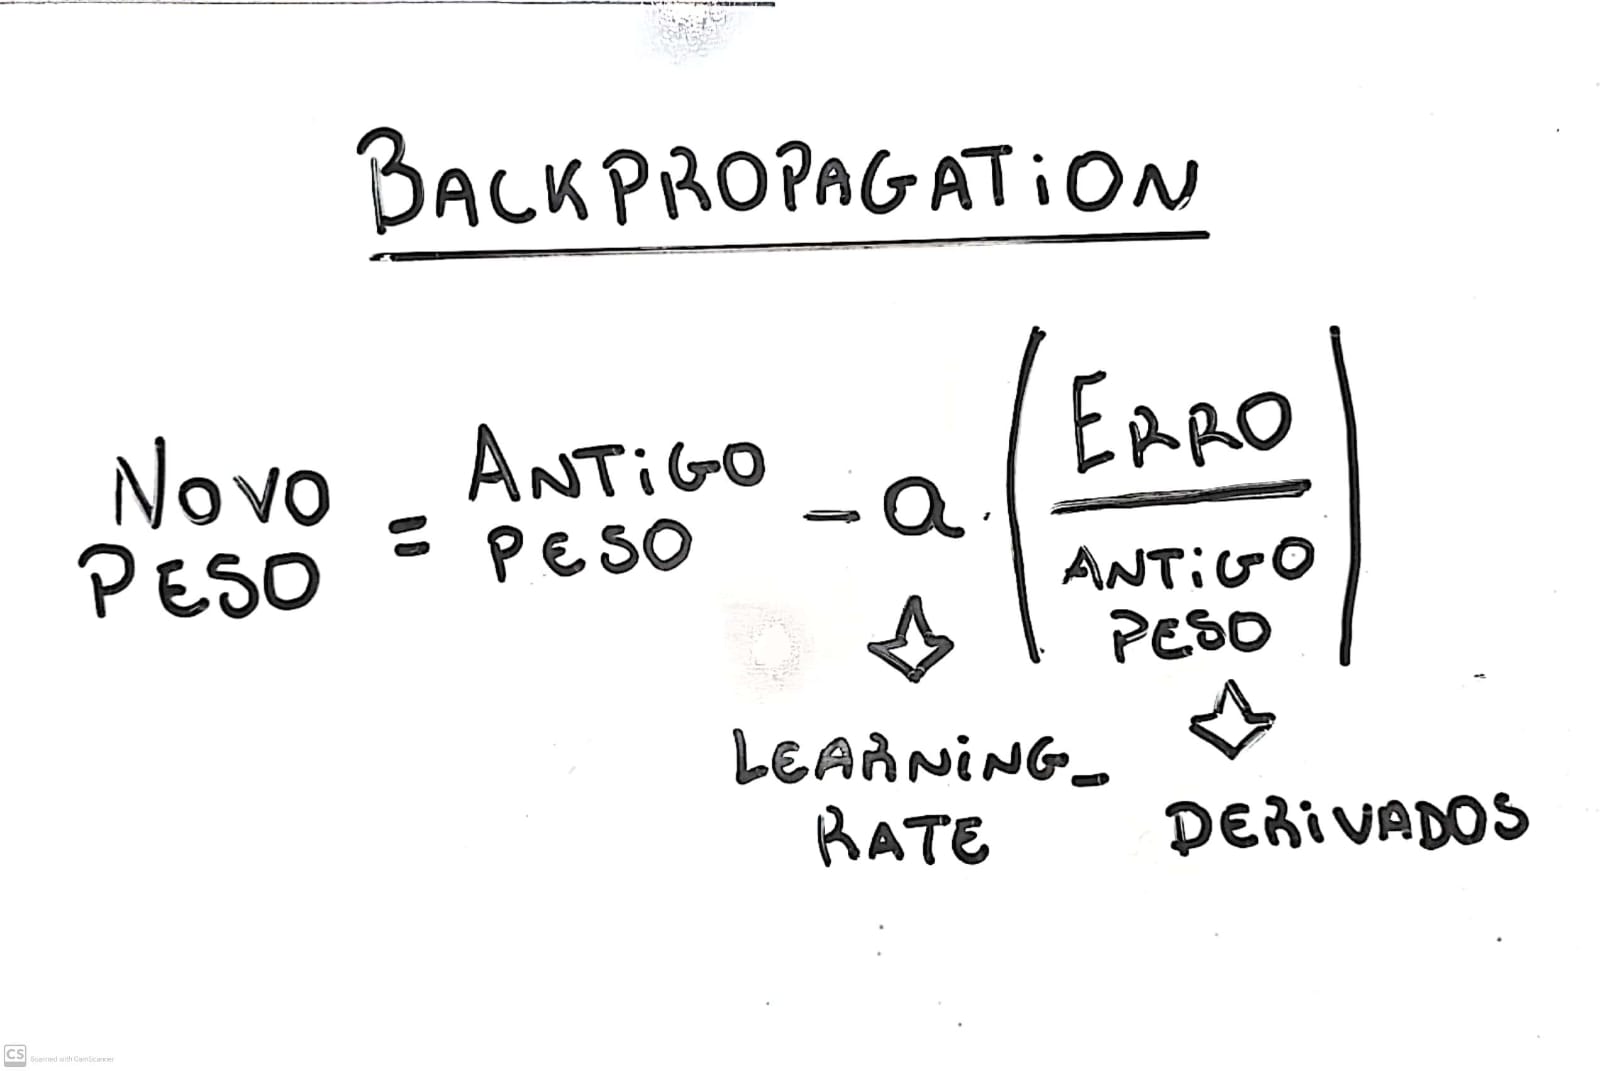 BACKPROPAGATiON
NOVO
PESO
=
ANTiGO
PESO
- a . (ERRO
ANTiGO
PESO)
LEARNiNG_
RATE
DERiVADOS
CS Scanned with CamScanner